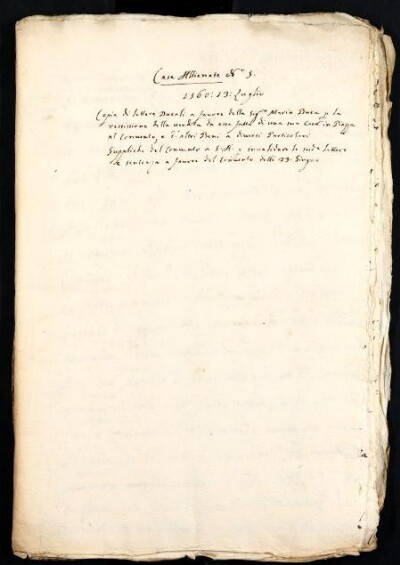 Case Alienate N.º 5.
1560: 13: Luglio
Copia di lettere Ducali a favore della Sig.ra Maria Duca p. la
rescissione della vendita da essa fatta di una sua Casa in Piazza
al Convento, e d'altri Beni a diversi Particolari
Suppliche del Convento a S. A. p. invalidare le sud.e lettere
e sentenza a favore del Convento delli 23. Giugno